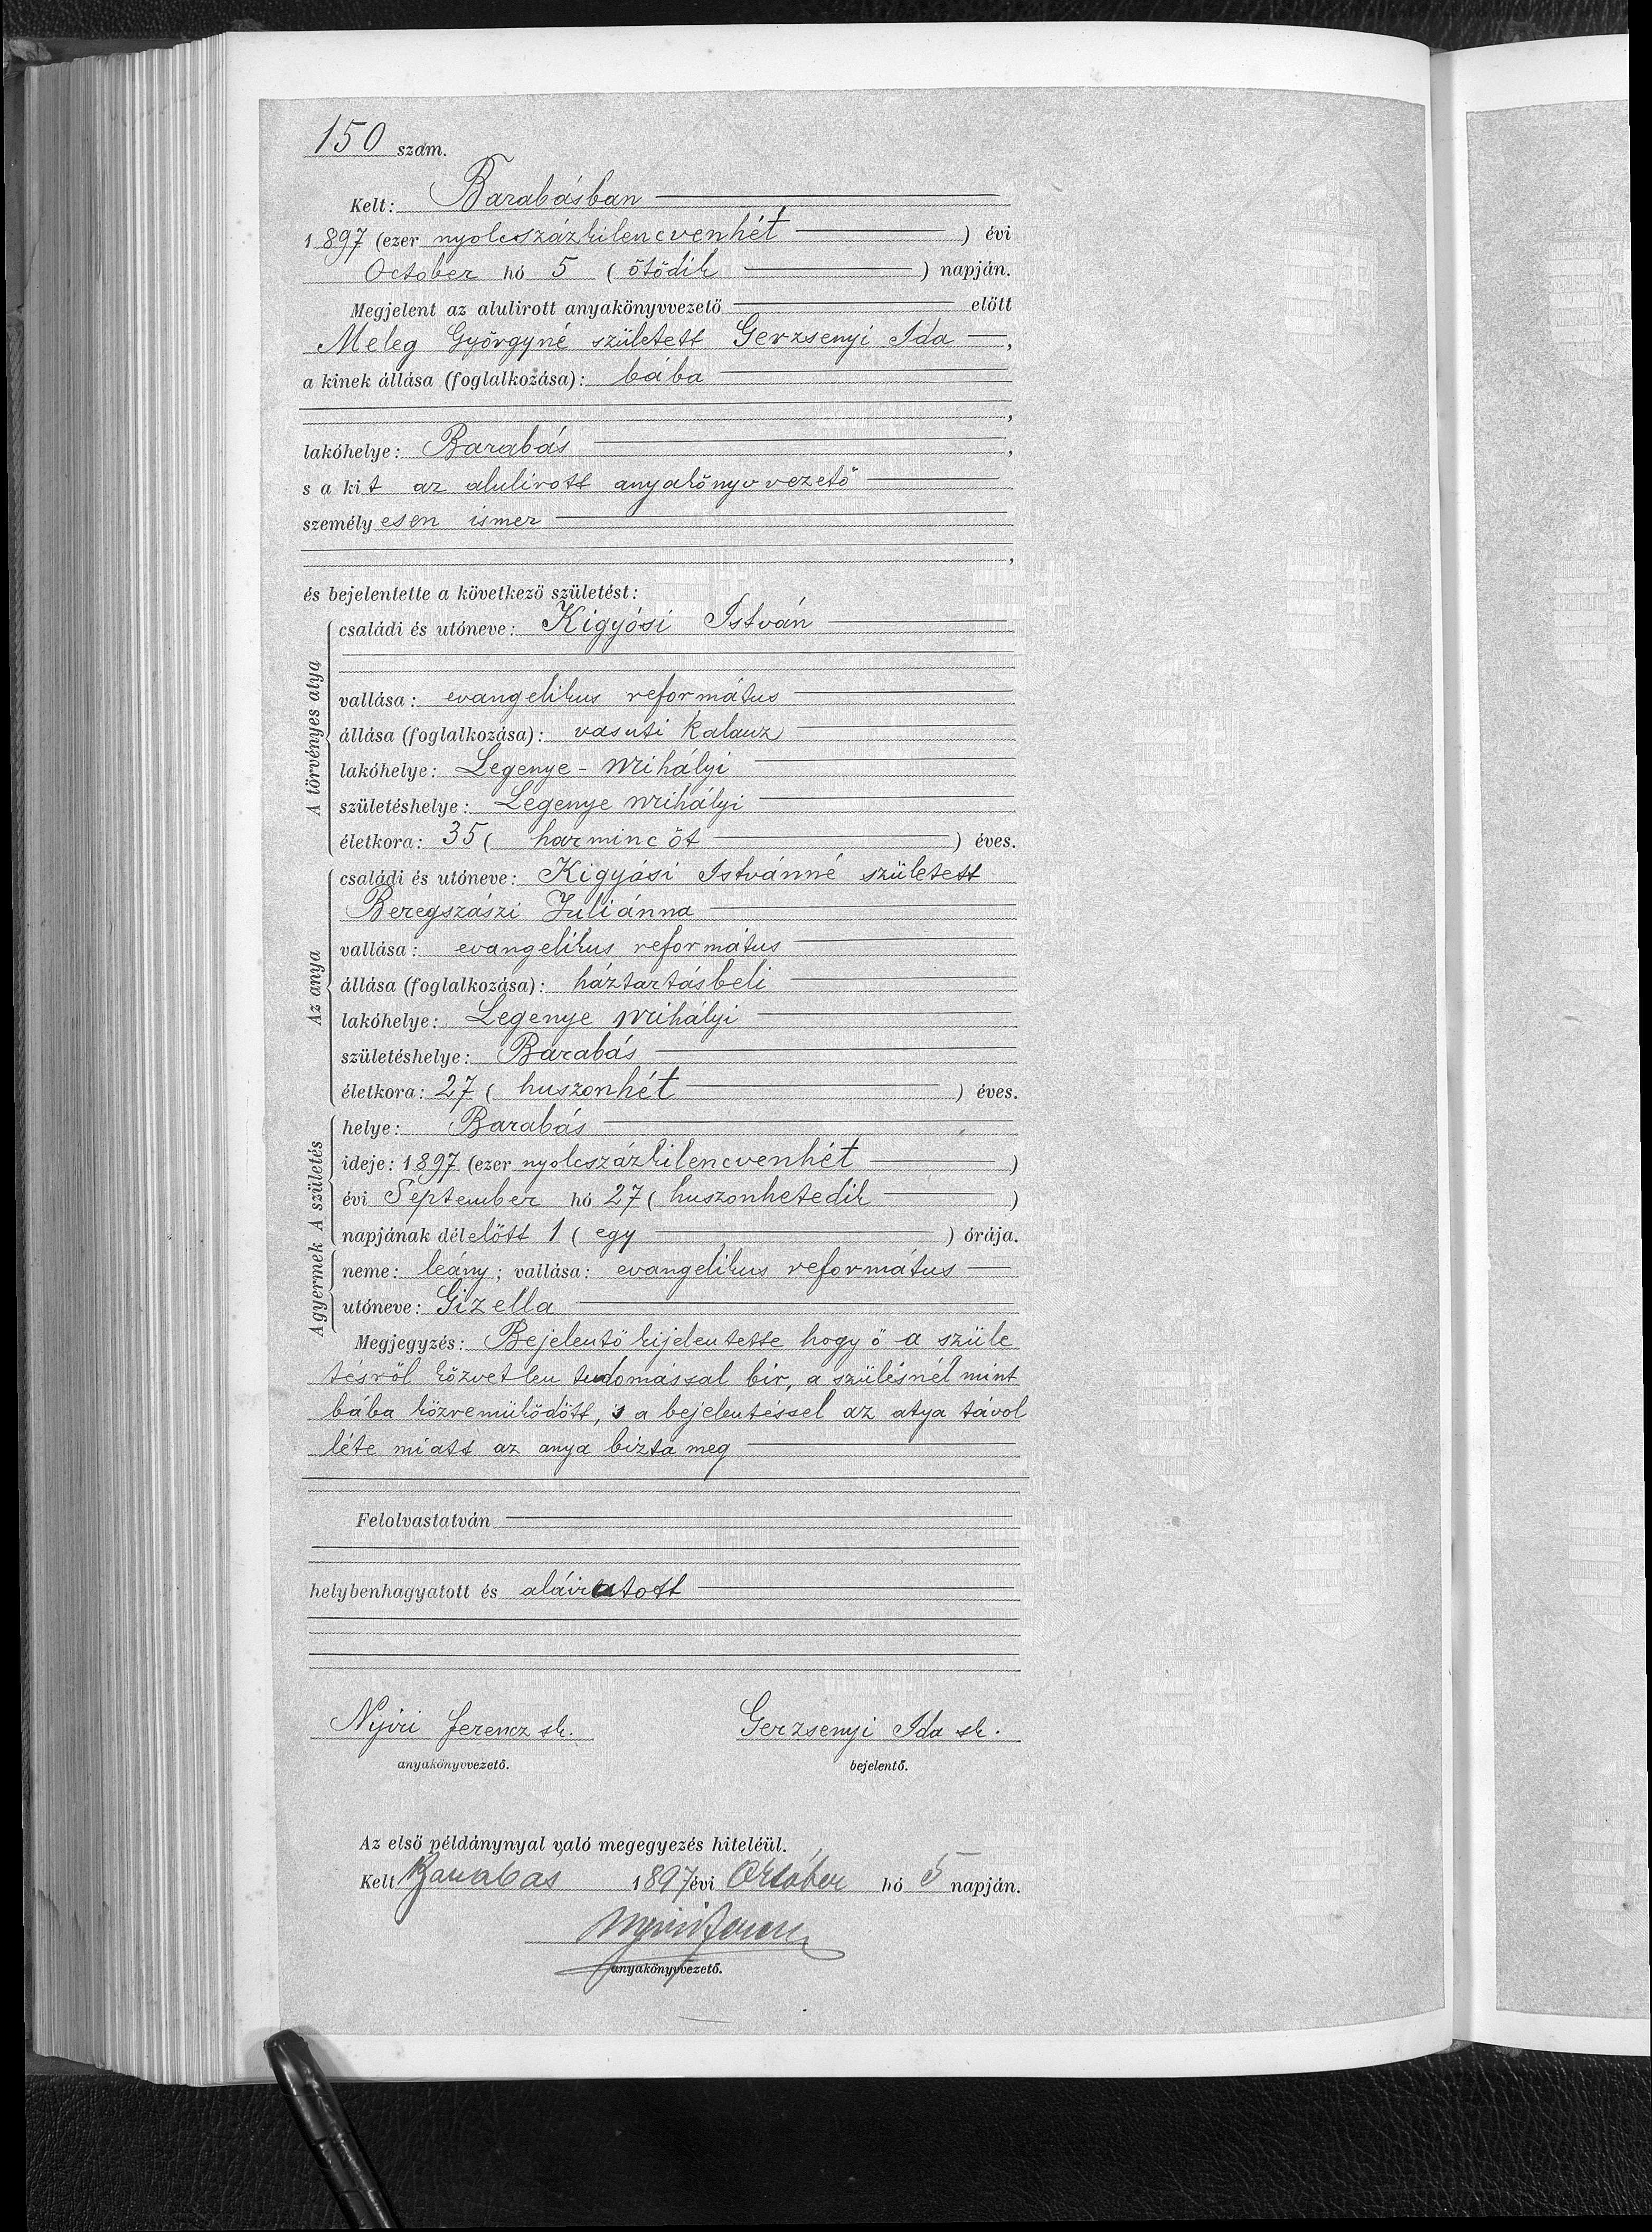 150 szám.
Kelt: Barabásban
1897 (ezer nyolcszázkilencvenhét) évi
October hó 5 (ötödik) napján.
Megjelent az alulirott anyakönyvvezető előtt
Meleg Györgyné született Gerzsenyi Ida,
a kinek állása (foglalkozása): bába
,
lakóhelye: Barabás,
s a kit az alulirott anyakönyvvezető
személyesen ismer
,
és bejelentette a következő születést:
A törvényes atya
családi és utóneve: Kigyósi István
vallása: evangelikus református
állása (foglalkozása): vasuti kalauz
lakóhelye: Legenye-Mihályi
születéshelye: Legenye Mihályi
életkora: 35 (harmincöt) éves.
Az anya
családi és utóneve: Kigyósi Istvánné született
Beregszászi Juliánna
vallása: evangelikus református
állása (foglalkozása): háztartásbeli
lakóhelye: Legenye Mihályi
születéshelye: Barabás
életkora: 27 (huszonhét) éves.
A születés
helye: Barabás
ideje: 1897 (ezer nyolcszázkilencvenhét)
évi September hó 27 (huszonhetedik)
napjának délelőtt 1 (egy) órája.
A gyermek
neme: leány; vallása: evangelikus református
utóneve: Gizella
Megjegyzés: Bejelentö kijelentette hogy ö a szüle
tésröl közvetlen tudomással bir, a szülésnél mint
bába közremüködött, s a bejelentéssel az atya távol
léte miatt az anya bizta meg
Felolvastatván
helybenhagyatott és aláiratott
Nyiri Ferencz sk. Gerzsenyi Ida sk.
anyakönyvvezető. bejelentő.
Az első példánynyal való megegyezés hiteléül.
Kelt Barabás 1897 évi Október hó 5 napján.
Nyiri Ferencz
anyakönyvvezető.